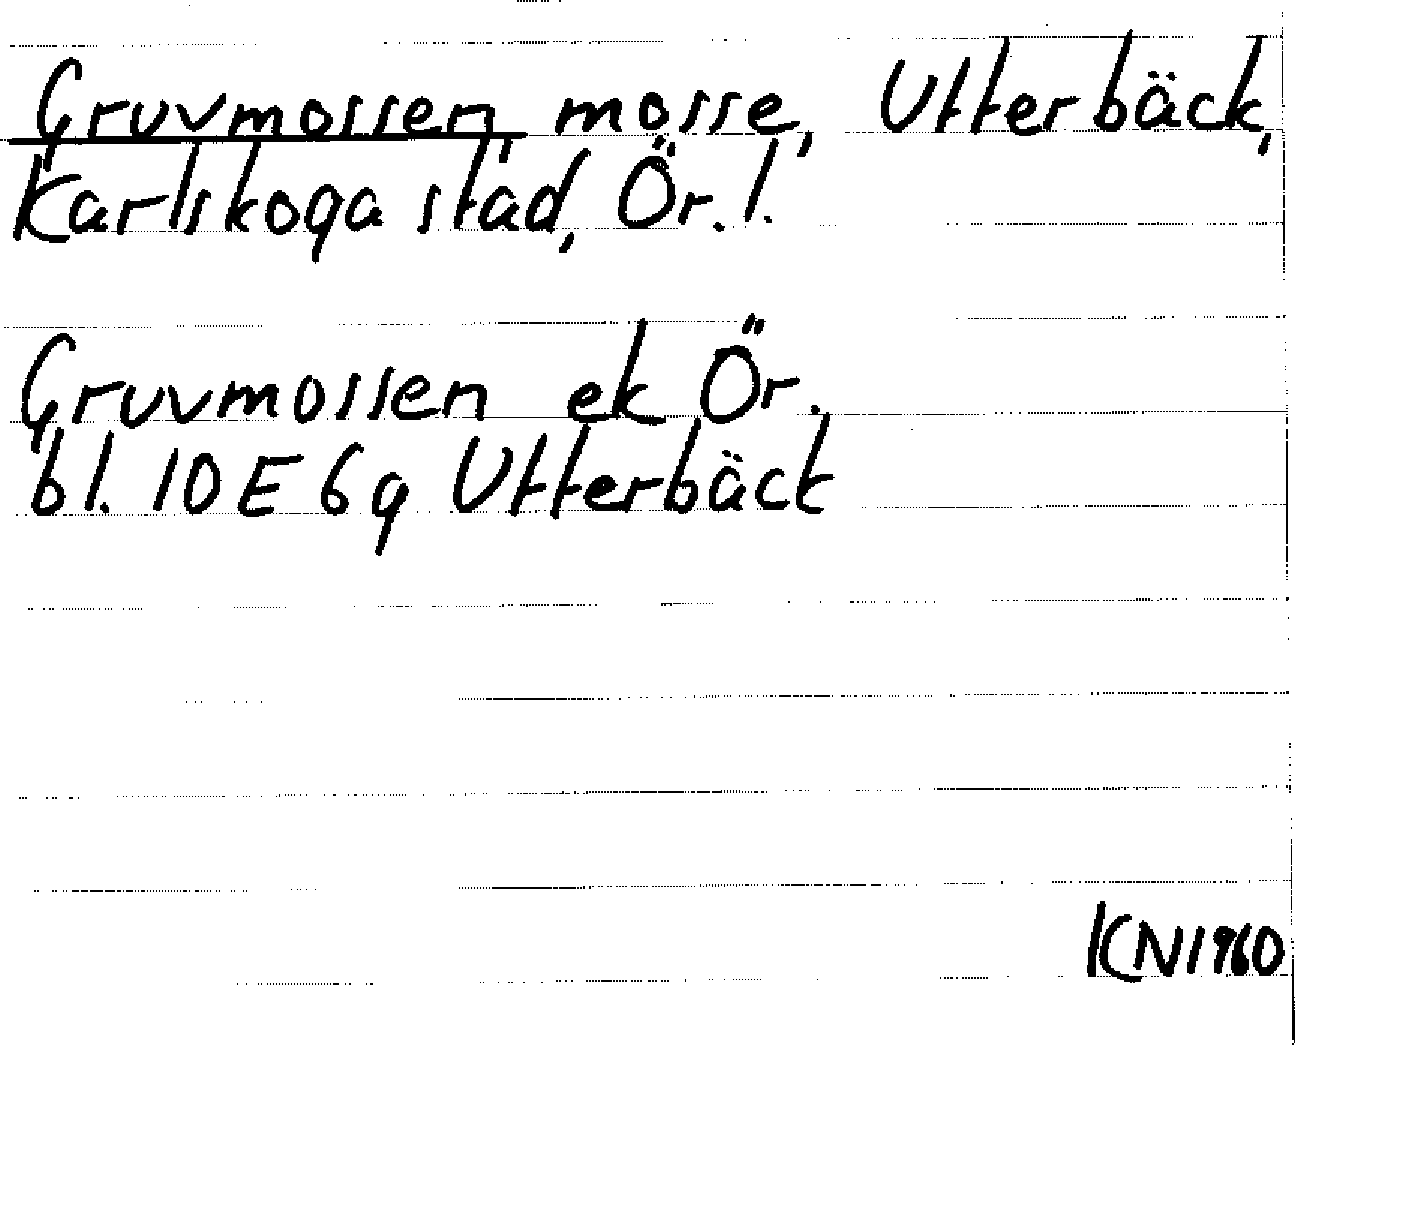 Gruvmossen, mosse, Utterbäck,
Karlskoga stad, Ör. l.
Gruvmossen ek Ör.
bl. 10 E 6g Utterbäck
KN1960